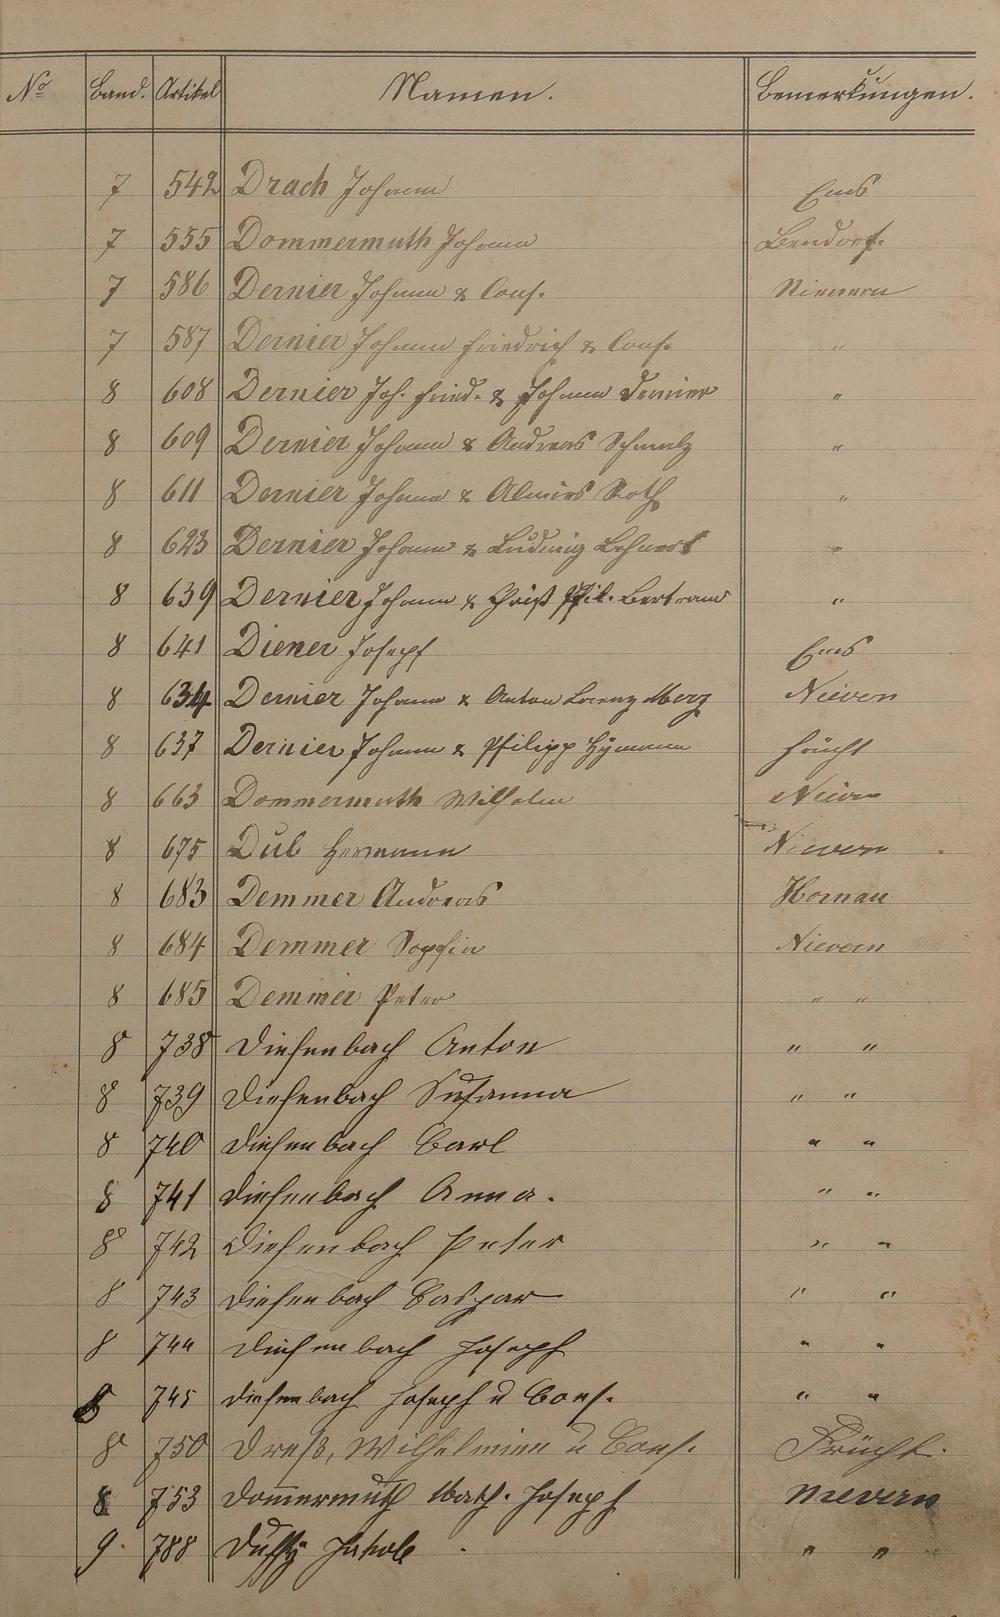 No Band. Artikel Namen. Bemerkungen.
7 542 Drach Johann Ems
7 555 Dommermuth Johann Bendorf.
7 586 Dernier Johann & Cons. Nievern
7 587 Dernier Johann Friedrich & Cons. "
8 608 Dernier Joh. Fried. & Johann Dernier "
8 609 Dernier Johann & Andreas Schmalz "
8 611 Dernier Johann & Roth "
8 623 Dernier Johann & Ludwig Lehnert "
8 639 Dernier Johann & Christ Phil. Bertram "
8 641 Diener Joseph Ems
8 634 Dernier Johann & Anton Lorenz Merz Nievern
8 637 Dernier Johann & Philipp Hÿmann Frücht
8 663 Dommermuth Wilhelm Nievern
8 675 Dub Hermann Nievern
8 683 Demmer Andreas Hornau
8 684 Demmer Sophia Nievern
8 685 Demmer Peter " "
8 738 Diefenbach Anton " "
8 739 Diefenbach Susanna " "
8 740 Diefenbach Carl " "
8 741 Diefenbach Anna. " "
8 742 Diefenbach Peter " "
8 743 Diefenbach Caspar " "
8 744 Diefenbach Joseph " "
8 745 Diefenbach Joseph u Cons. " "
8 750 Dreß, Wilhelmine u Cons. Frücht.
8 753 Dom̄ermuth Math. Joseph Nievern
9. 788 Jakob " "